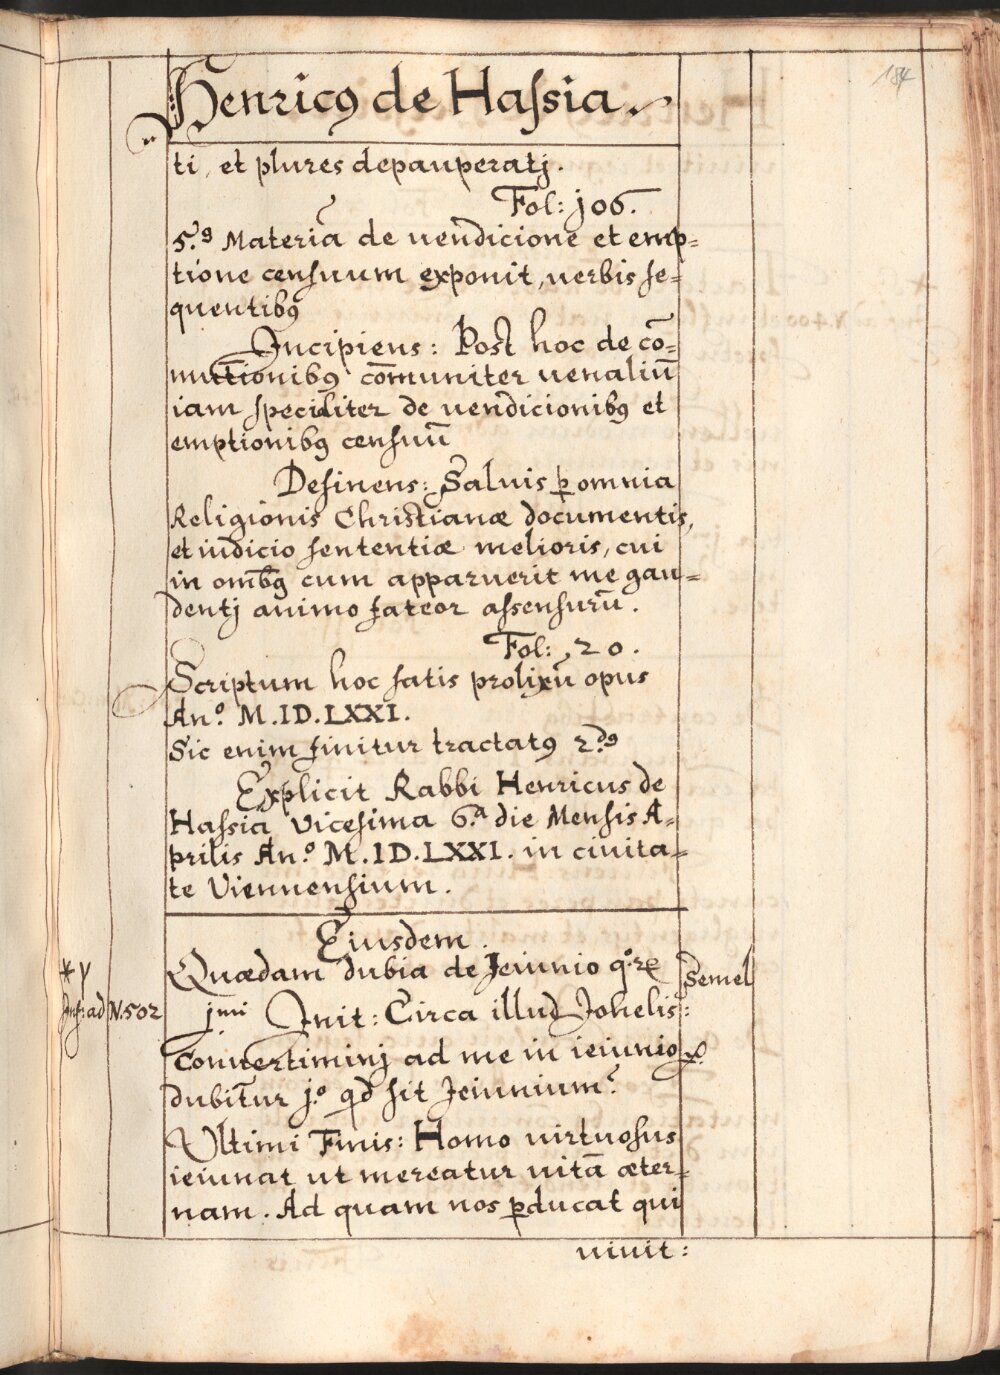 184
Henricꝰ de Haſsia.
ti, et plures depauperatj.
Fol: j06.
5.ꝰ Materiā de uendicione et emp=
tione cenſuum exponit, uerbis ſe=
quentibꝰ
Incipiens: Post hoc de cō=
mutionibꝰ com̄uniter uenaliū
iam ſpeciliter de uendicionibꝰ et
emptionibꝰ cenſuū
Deſinens: Saluis ꝑ omnia
Religionis Christianæ documentis,
et iudicio ſententiæ melioris, cui
in om̄bꝰ cum apparuerit me gau=
dentj animo fateor aſsenſurū.
Fol: 20.
Scriptum hoc ſatis prolixū opus
An.º M.ID.LXXI.
Sic enim finitur tractatꝰ 2.dꝰ
Explicit Rabbi Henricus de
Haſsia Viceſima 6.ª die Menſis A=
prilis An.º M.ID.LXXI. in ciuita=
te Viennenſium.
Eiusdem.
Quædam dubia de Jeiunio q.ºꝝ
Semel
N.502
jmi Init: Circa illud Johelis:
Conuertiminj ad me in ieiunio
dubitur̄ j.º qd ſit Jeiunium?
Ultimi Finis: Homo uirtuoſus
ieiunat ut mereatur uitā æter=
nam. Ad quam nos ꝑducat qui
uiuit: